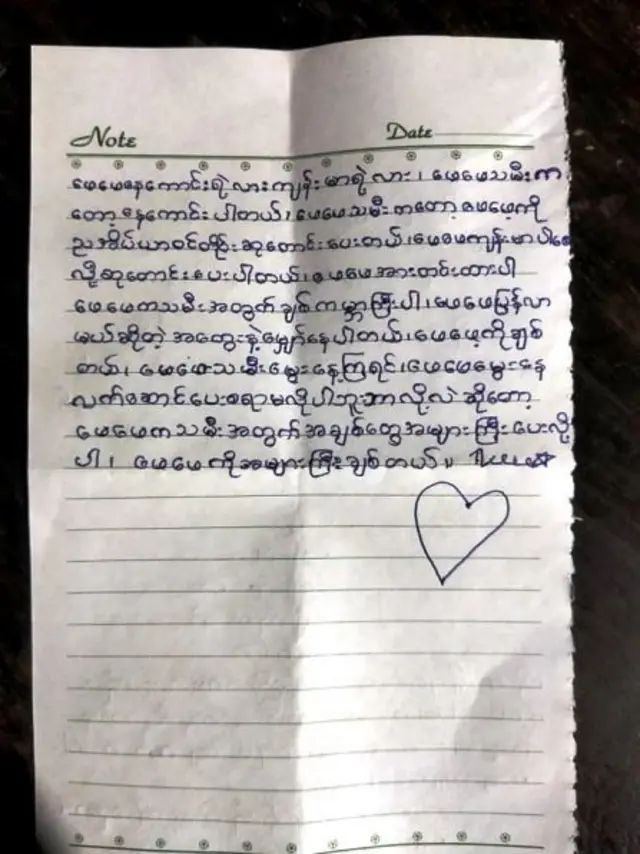 Note Date
မေမေနေကောင်းရဲ့လားကျန်းမာရဲ့လား၊ မေမေသမီးက
တော့နေကောင်းပါတယ်၊မေမေသမီးကတော့မေမေ့ကို
ညအိပ်ယာဝင်တိုင်းဆုတောင်းပေးတယ်၊မေမေကျန်းမာပါစေ
လို့ဆုတောင်းပေးပါတယ်၊မေမေအားတင်းထားပါ
မေမေကသမီးအတွက်ချစ်ကမ္ဘာကြီးပါ၊မေမေပြန်လာ
မယ်ဆိုတဲ့အတွေးနဲ့မျှော်နေပါတယ်၊မေမေ့ကိုချစ်
တယ်၊ မေမေသမီးမွေးနေ့ကြရင်၊မေမေမွေးနေ့
လက်ဆောင်ပေးစရာမလိုပါဘူးဘာလို့လဲဆိုတော့
မေမေကသမီးအတွက်အချစ်တွေအများကြီးပေးလို့
ပါ၊ မေမေကိုအများကြီးချစ်တယ်။